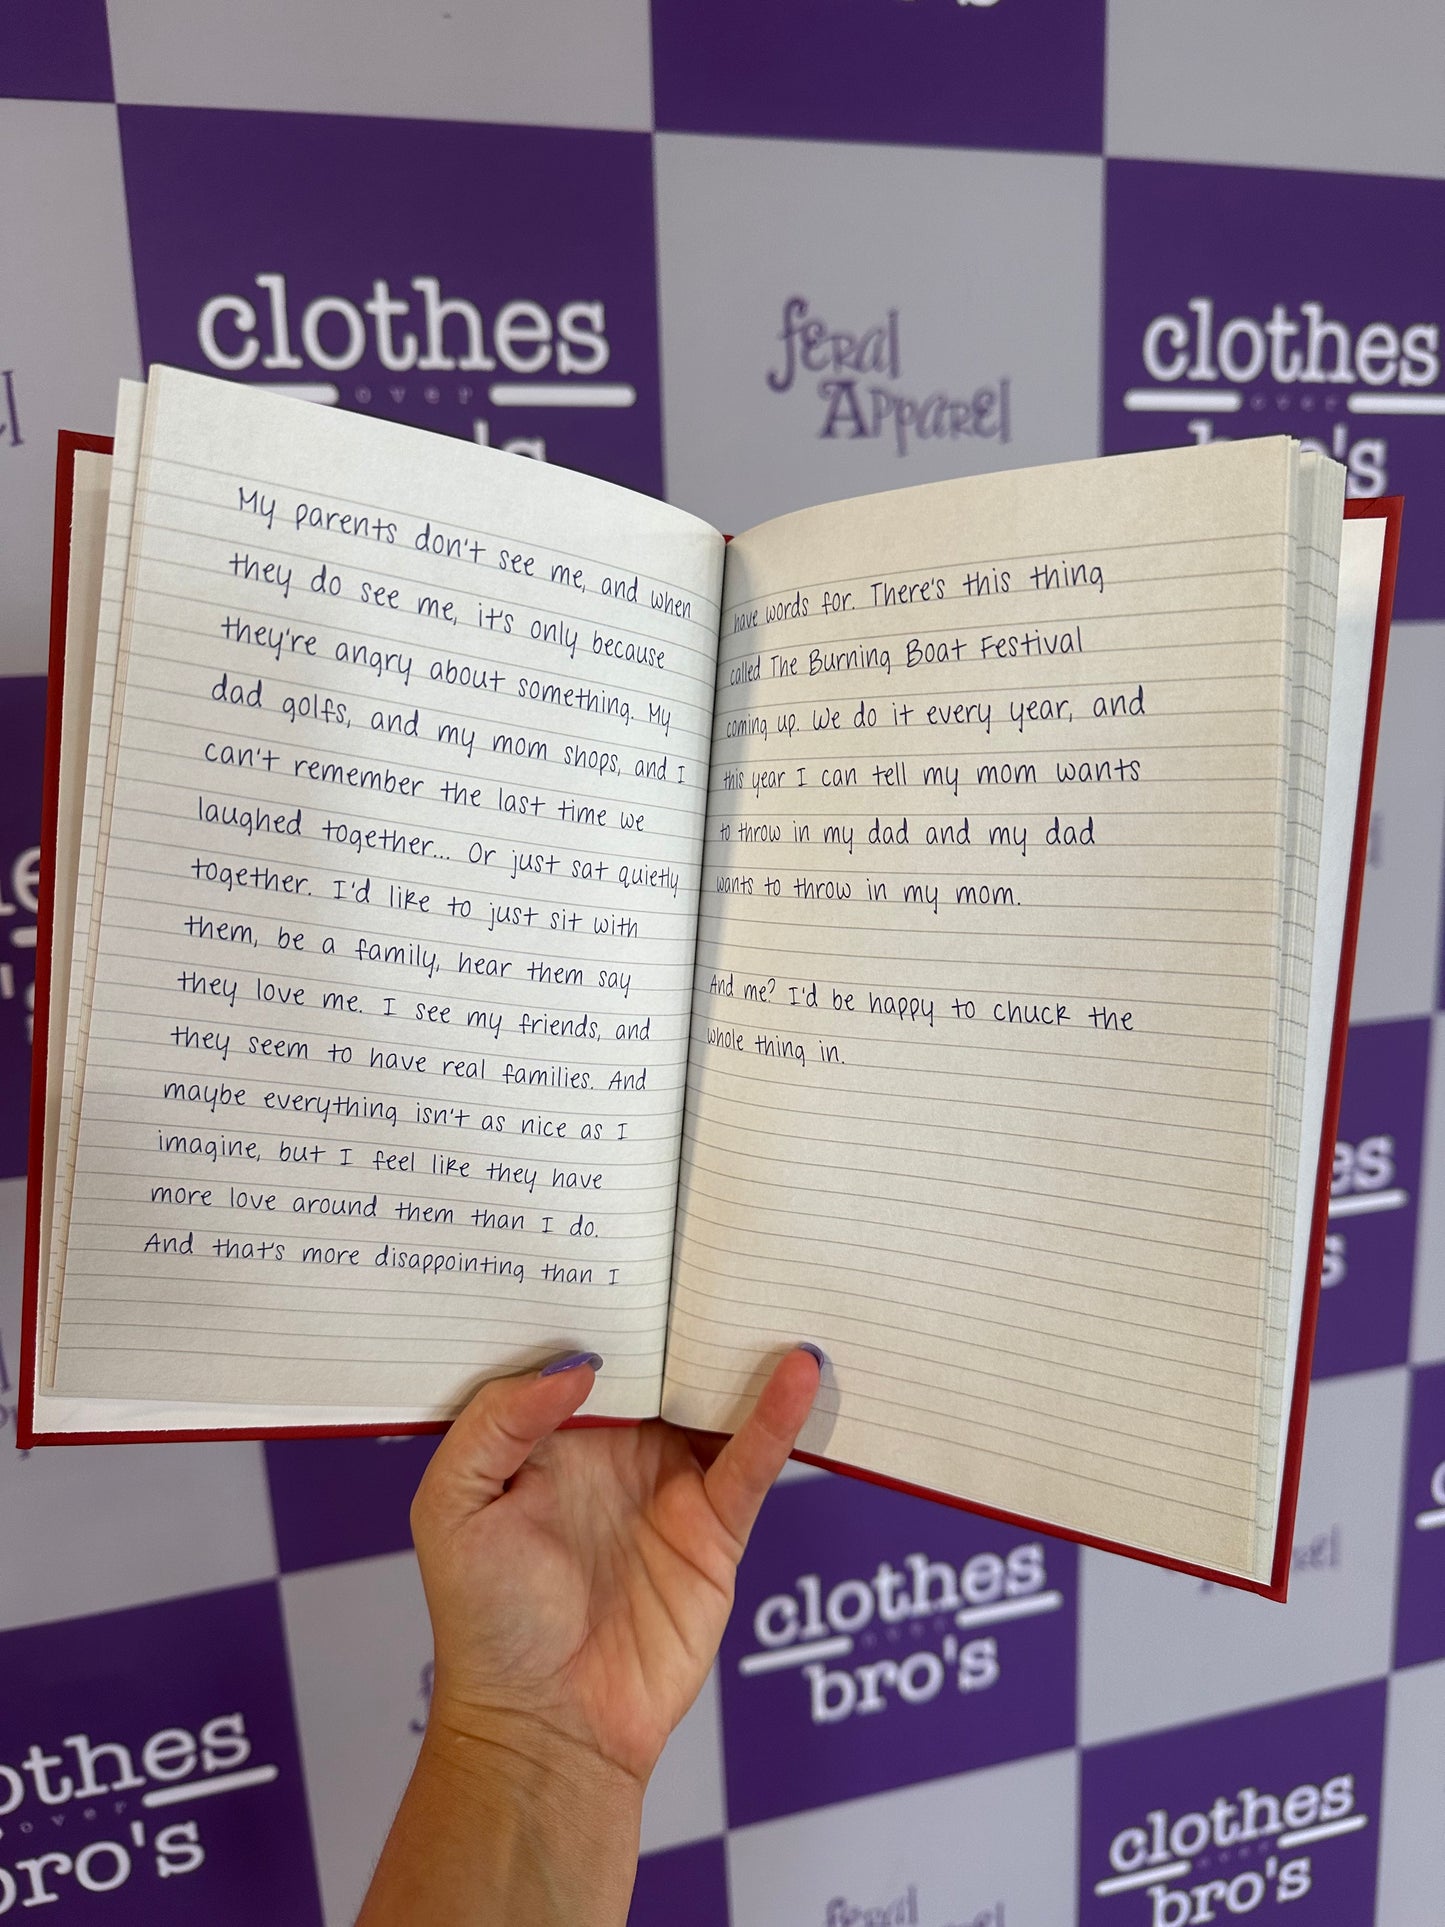 clothes
over
bro's
feral
Apparel
clothes
over
bro's
My parents don't see me, and when
they do see me, it's only because
they're angry about something. My
dad golfs, and my mom shops, and I
can't remember the last time we
laughed together... Or just sat quietly
together. I'd like to just sit with
them, be a family, hear them say
they love me. I see my friends, and
they seem to have real families. And
maybe everything isn't as nice as I
imagine, but I feel like they have
more love around them than I do.
And that's more disappointing than I
have words for. There's this thing
called The Burning Boat Festival
coming up. We do it every year, and
this year I can tell my mom wants
to throw in my dad and my dad
wants to throw in my mom.
And me? I'd be happy to chuck the
whole thing in.
clothes
over
bro's
clothes
over
bro's
clothes
bro's
feral